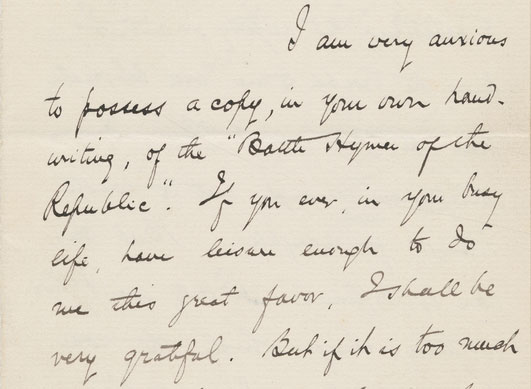 I am very anxious
to possess a copy, in your own hand-
writing, of the "Battle Hymn of the
Republic". If you ever, in your busy
life, have leisure enough to do
me this great favor, I shall be
very grateful. But if it is too much